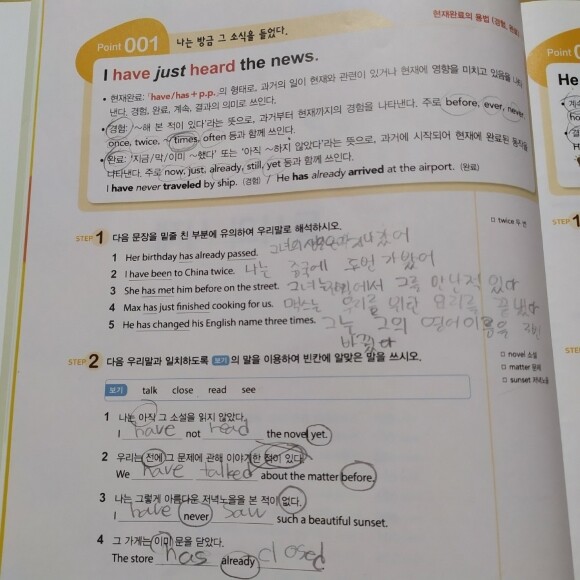 Point 001 나는 방금 그 소식을 들었다.
현재완료의 용법 (경험, 완료)
I have just heard the news.
• 현재완료: 「have/has + p.p.」의 형태로, 과거의 일이 현재와 관련이 있거나 현재에 영향을 미치고 있음을 나타
낸다. 경험, 완료, 계속, 결과의 의미로 쓰인다.
• 경험: '~해 본 적이 있다'라는 뜻으로, 과거부터 현재까지의 경험을 나타낸다. 주로 before, ever, never,
once, twice, ~ times, often 등과 함께 쓰인다.
• 완료: '지금/막/이미 ~했다' 또는 '아직 ~하지 않았다'라는 뜻으로, 과거에 시작되어 현재에 완료된 동작을
나타낸다. 주로 now, just, already, still, yet 등과 함께 쓰인다.
I have never traveled by ship. (경험) / He has already arrived at the airport. (완료)
STEP 1 다음 문장을 밑줄 친 부분에 유의하여 우리말로 해석하시오.
1 Her birthday has already passed. 그녀의 생일은 지나갔어
2 I have been to China twice. 나는 중국에 두번 가봤어
3 She has met him before on the street. 그녀는 에서 그를 만난적 있다
4 Max has just finished cooking for us. 맥스는 우리를 위한 요리를 끝냈다
5 He has changed his English name three times. 그는 그의 영어이름을 3번
바꿨다
□ twice 두 번
STEP 2 다음 우리말과 일치하도록 보기 의 말을 이용하여 빈칸에 알맞은 말을 쓰시오.
□ novel 소설
□ matter 문제
□ sunset 저녁노을
보기 talk close read see
1 나는 아직 그 소설을 읽지 않았다.
I have not read the novel yet.
2 우리는 전에 그 문제에 관해 이야기한 적이 있다.
We have talked about the matter before.
3 나는 그렇게 아름다운 저녁노을을 본 적이 없다.
I have never saw such a beautiful sunset.
4 그 가게는 이미 문을 닫았다.
The store has already closed.
Point
He